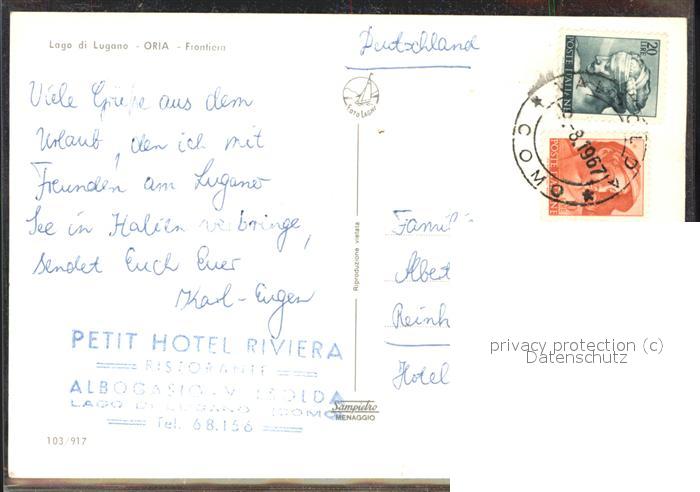 Lago di Lugano - ORIA - Frontiera
Deutschland
20
LIRE
POSTE ITALIANE
POSTE ITALIANE
COMO
-8.1967
Foto Lager
Viele Grüße aus dem
Urlaub, den ich mit
Freunden am Lugano
See in Italien verbringe,
sendet Euch Euer
Karl-Eugen
Riproduzione vietata
Famili
Albert
Reinh
Hotel
PETIT HOTEL RIVIERA
RISTORANTE
ALBOGASIO-VALSOLDA
LAGO DI LUGANO (COMO)
Tel. 68.156
Sampietro
MENAGGIO
103/917
privacy protection (c)
Datenschutz